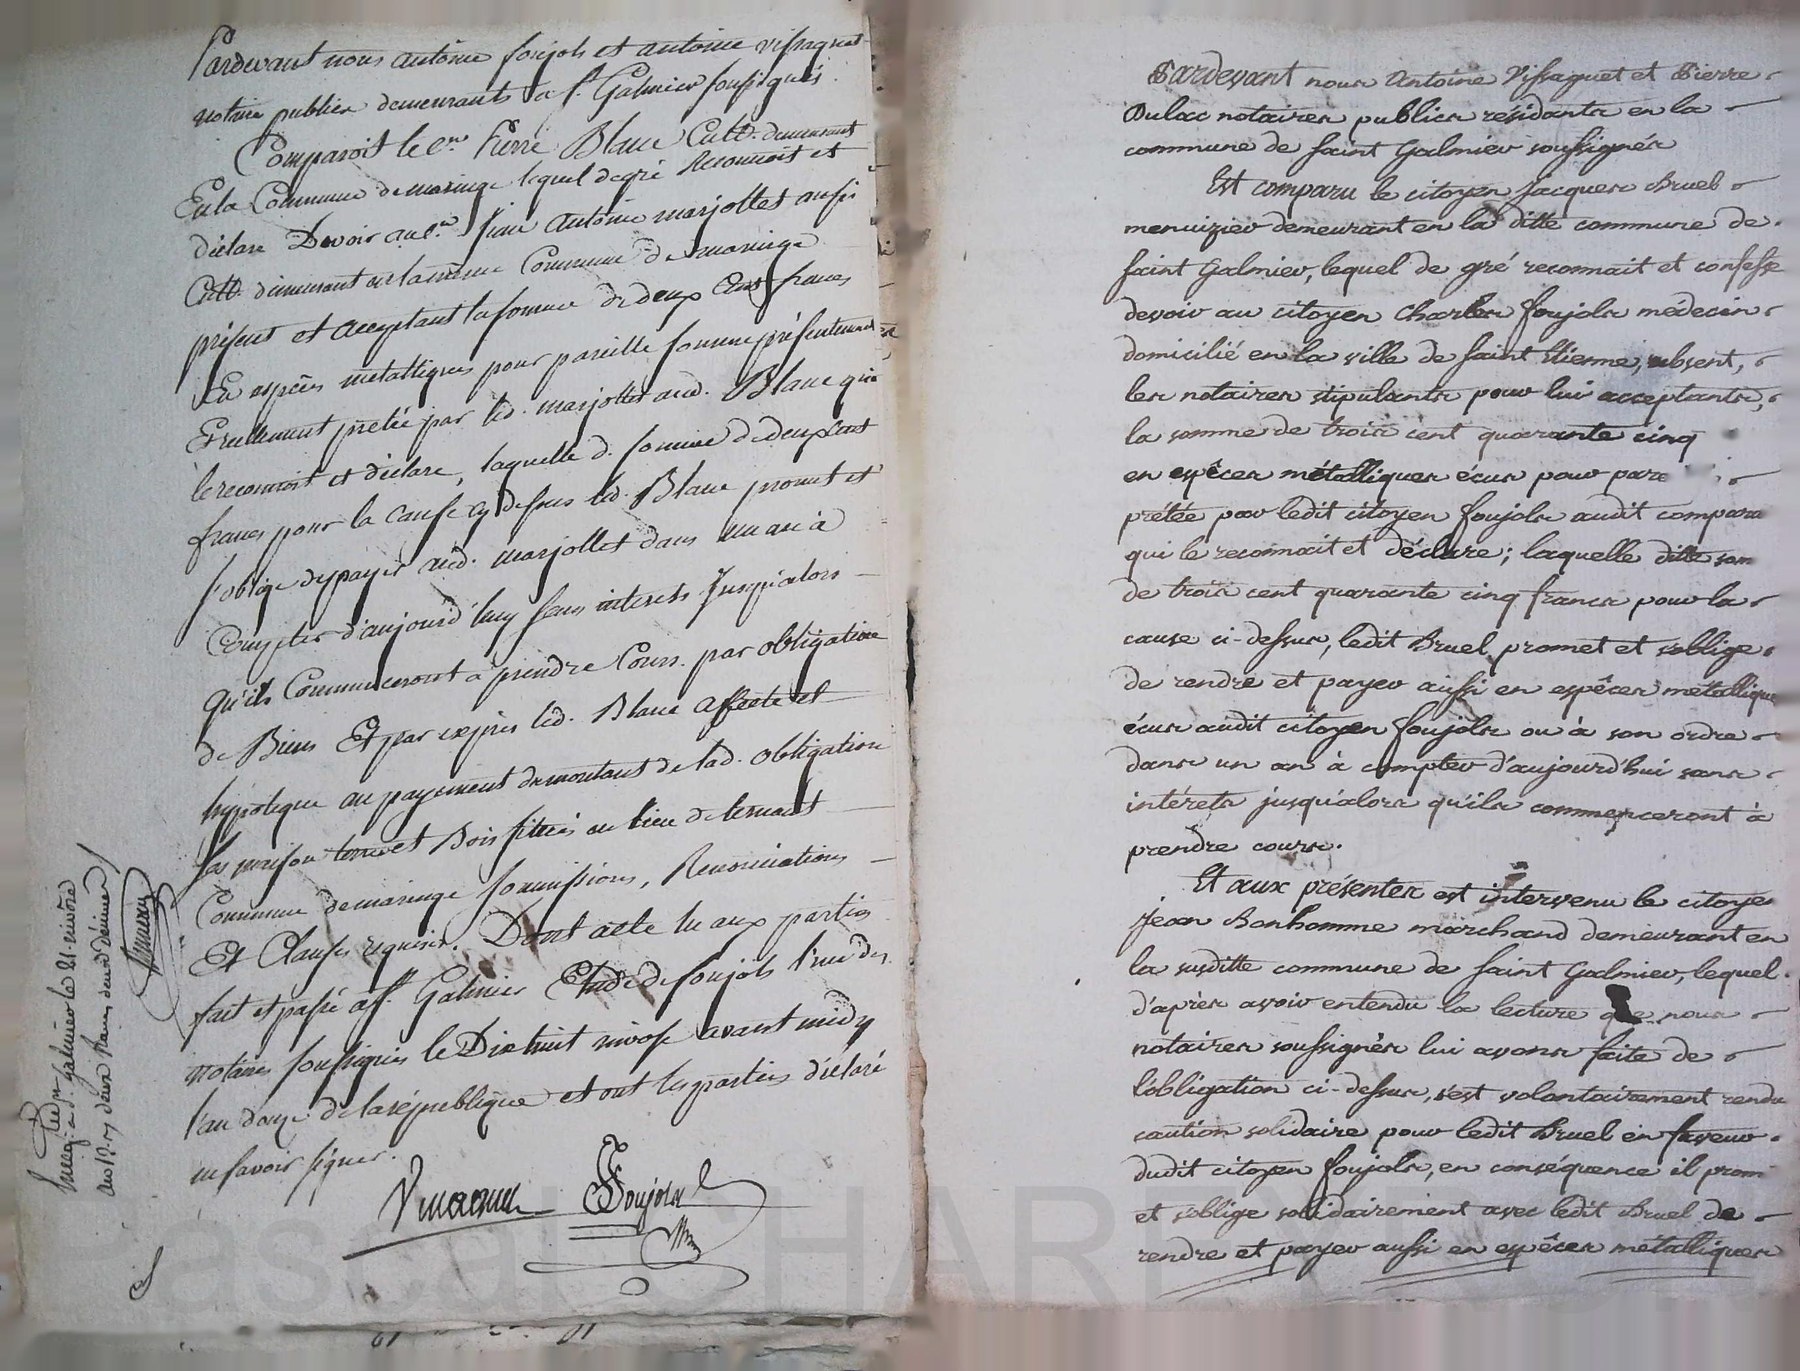 Pardevant nous antoine foujols et antoine vissaguet
notaires publics demeurants a st. Galmier soussignés.
Comparoit le cen. Pierre Blanc Cultr. demeurant
En la Commune de maringe lequel de gré Reconnoit et
déclare Devoir au cen. jean antoine marjollet aussi
Cultr. demeurant en la même Commune de maringe
présent et acceptant la somme de deux Cent francs
En espèces métalliques pour pareille somme présentement
Et réellement pretée par led. marjollet aud. Blanc qui
le reconnoit et déclare, laquelle d. somme de deux cent
francs pour la cause cy dessus led. Blanc promet et
s'oblige de payer aud. marjollet dans un an à
Compter d'aujourd'huy sans interets Jusqu'alors
qu'ils Commenceront à prendre Cours. par obligation
de Biens Et par exprès led. Blanc affecte et
hypoteque au payement du montant de lad. obligation
sa maison terres et Bois situés au lieu de
Commune de maringe soumissions, Renonciations
Et Clauses requises. Dont acte lu aux parties
fait et passé a st. Galmier Etude de foujols l'un des
notaires soussignés le Dix huit nivose avant midy
l'an douze de la république et ont les parties déclaré
ne savoir signer.
Foujols
a st. galmier le 21 nivose
an 12. deux francs
Pardevant nous Antoine Vissaguet et Pierre
Dulac notaires publics résidants en la
commune de saint Galmier soussignés
Est comparu le citoyen Jacques Bruel
menuizier demeurant en la ditte commune de
saint Galmier, lequel de gré reconnait et confesse
devoir au citoyen Charles foujols médecin
domicilié en la ville de saint Etienne, absent,
les notaires stipulants pour lui acceptants,
la somme de trois cent quarante cinq
en espêces métalliques écus pour pare
prêtée par ledit citoyen foujols audit comparu
qui le reconnait et déclare; laquelle ditte som
de trois cent quarante cinq francs pour la
cause ci-dessus, ledit Bruel promet et s'oblige
de rendre et payer aussi en espêces métallique
écus audit citoyen foujols ou à son ordre
dans un an à compter d'aujourd'hui sans
intérets jusqu'alors qu'ils commenceront à
prendre cours.
Et aux présentes est intervenu le citoyen
jean Bonhomme marchand demeurant en
la susditte commune de saint Galmier, lequel
d'après avoir entendu la lecture que nous
notaires soussignés lui avons faite de
l'obligation ci-dessus, s'est volontairement rendu
caution solidaire pour ledit Bruel en faveur
dudit citoyen foujols, en conséquence il prom
et s'oblige solidairement avec ledit Bruel de
rendre et payer aussi en espêces métalliques